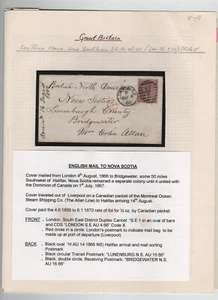 Great Britain
British North America
Nova Scotia
Lunenburgh County
Bridgewater
Mrs Colin Allan
ENGLISH MAIL TO NOVA SCOTIA
Cover mailed from London 4th August, 1866 to Bridgewater, some 50 miles
Southwest of Halifax. Nova Scotia remained a separate colony until it united with
the Dominion of Canada on 1st July, 1867.
Cover traveled out of Liverpool on a Canadian packet of the Montreal Ocean
Steam Shipping Co. (The Allan Line) to Halifax arriving 14th August.
Cover paid the 4.6.1856 to 6.1.1870 rate of 6d for ¼ oz. by Canadian packet.
FRONT - London, South East District Duplex Cancel "S.E 1 in an oval of bars
and CDS "LONDON S E AU 4 66" Code X
Red streak or crowns is to indicate that mail bag item to be
made up at port of departure (Liverpool)
BACK - Black oval "H AU 14 1866 NS) Halifax arrival and mail sorting
Postmark
Black circular Transit Postmark: "LUNENBURG N.S. AU 15 66"
Black, double circle, Receiving Postmark: "BRIDGEWATER N.S.
AU 15 66"